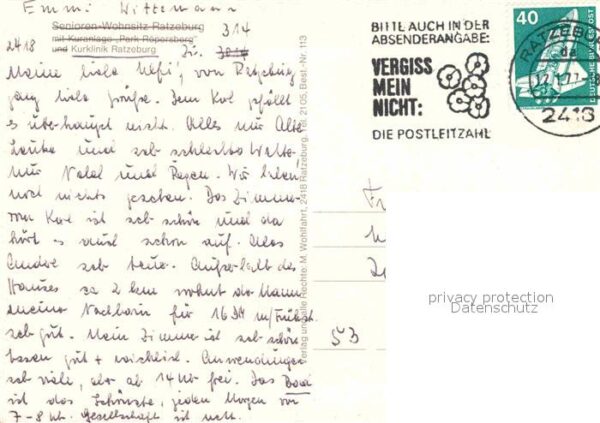 Emmi Wittemann
Senioren-Wohnsitz Ratzeburg
mit Kuranlage „Park Röpersberg"
und Kurklinik Ratzeburg
314
2418
Zi. 3014
Meine liebe Uschi, von Ratzeburg
ganz liebe Grüße. Dem Karl gefällt
es überhaupt nicht. Alles nur Alte
Leute und seh schlechtes Wetter
nur Nebel und Regen. Wir haben
noch nichts gesehen. Das Zimmer
von Karl ist seh schön und da
hört es auch schon auf. Alles
Andere seh teuer. Außerhalb des
Hauses ca 2 km wohnt der Mann
meiner Nachbarin für 16 DM m/Frühst.
seh gut. Mein Zimmer ist seh schön
Essen gut + reichlich. Anwendungen
seh viele, aber ab 14 Uhr frei. Das Bad
ist das Schönste, jeden Morgen von
7-8 Uhr. Gesellschaft ist nett.
Verlag und alle Rechte: M. Wohlfahrt, 2418 Ratzeburg, Tel. 2105, Best.-Nr. 113
BITTE AUCH IN DER
ABSENDERANGABE:
VERGISS
MEIN
NICHT:
DIE POSTLEITZAHL
RATZEBU
2418
40
DEUTSCHE BUNDESPOST
53
privacy protection
Datenschutz